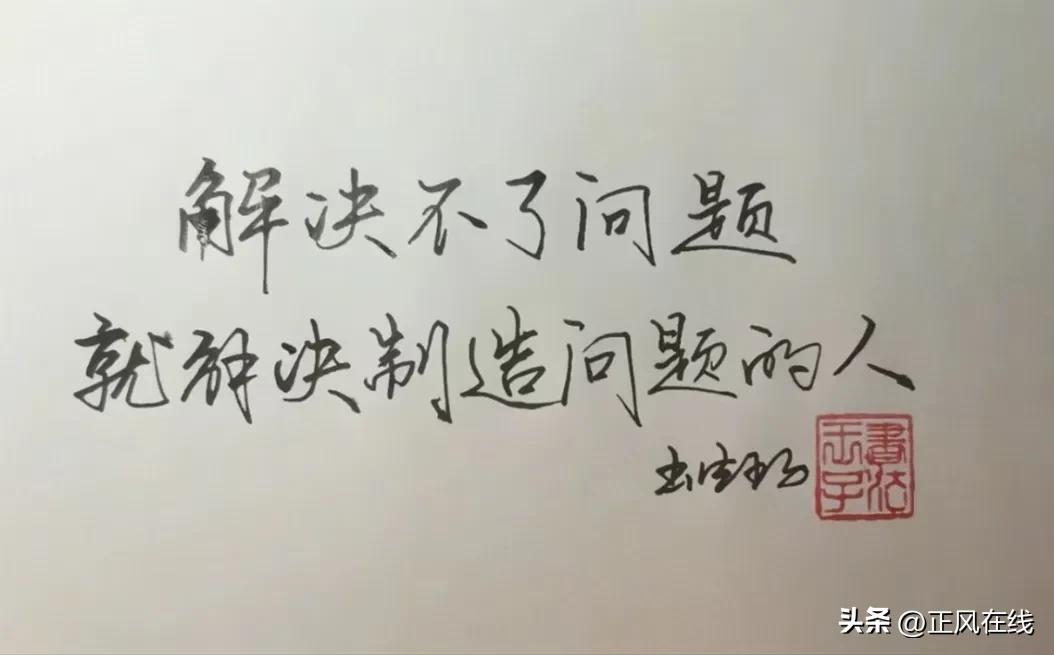 解决不了问题
就解决制造问题的人
玉子書法
头条 @正风在线